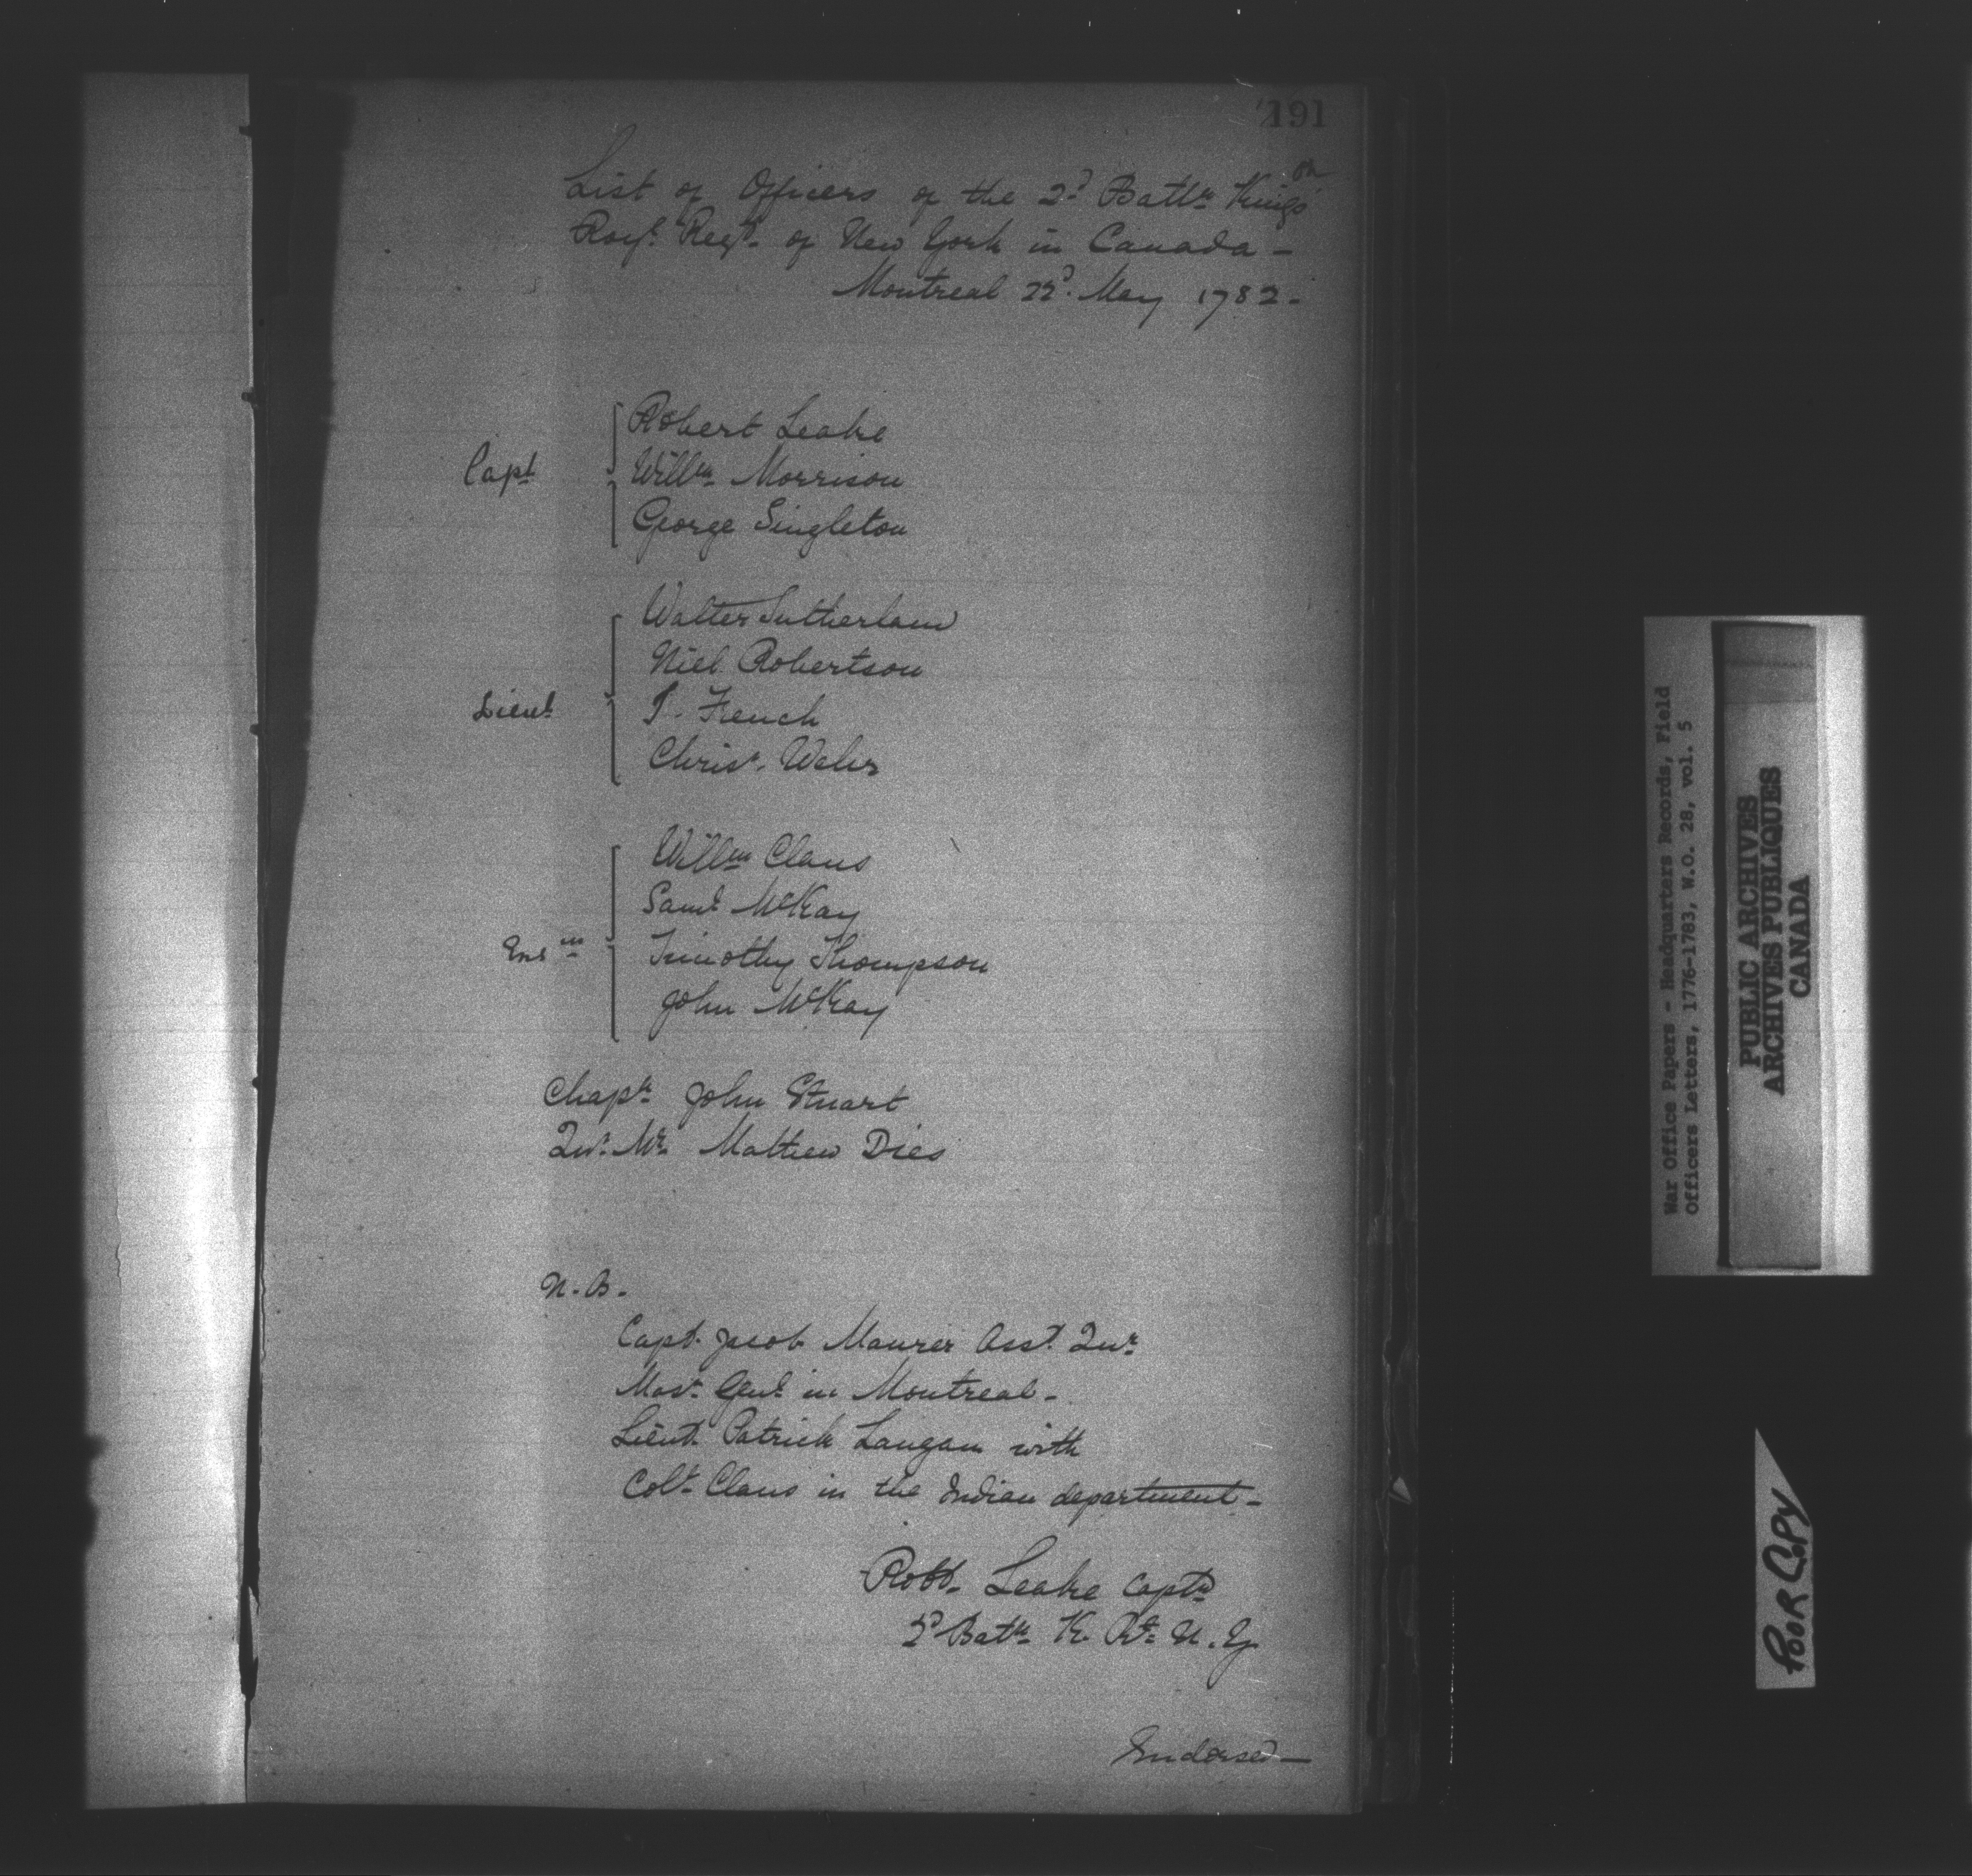 191
List of Officers of the 2d Battn Kings
Royl Regt of New York in Canada -
Montreal 22d May 1782 -
Robert Leake
Capt Willm Morrison
George Singleton
Walter Sutherland
Niel Robertson
Lieut J. French
Christ. Wehr
Willm Claus
Saml McKay
Ensn Timothy Thompson
John McKay
Chapn John Stuart
Qur. Mr. Mathew Dies
N. B.
Capt. Jacob Maurer Asst. Qur.
Mast. Genl. in Montreal -
Lieut. Patrick Langan with
Coll. Claus in the Indian department -
Robt. Leake Captn
2d Batn K. Rt. N. Y.
Endorsed —
War Office Papers - Headquarters Records, Field
Officers Letters, 1776-1783, W.O. 28, vol. 5
PUBLIC ARCHIVES
ARCHIVES PUBLIQUES
CANADA
POOR COPY